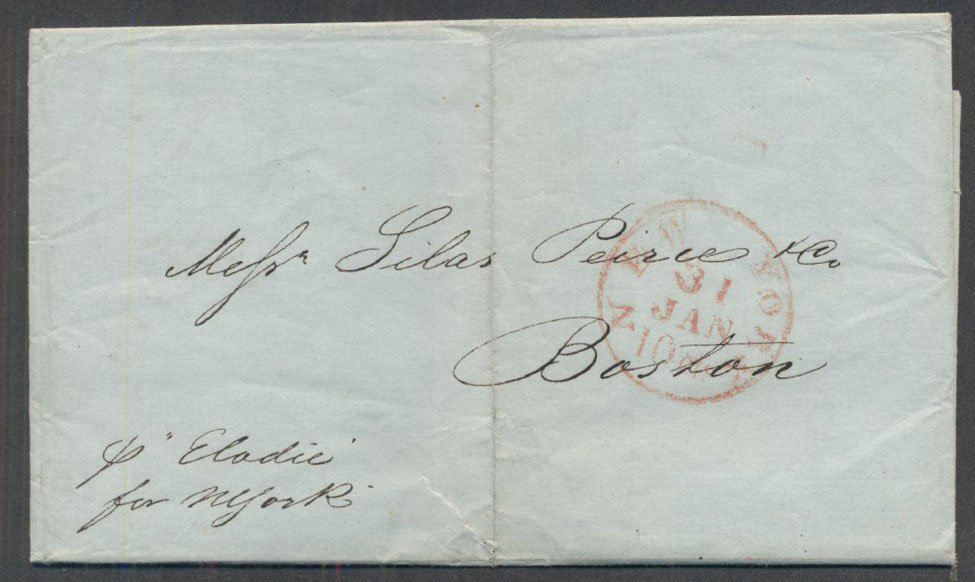 Messrs Silas Peirce & Co
Boston
NEW YORK
31
JAN
10 cts
p "Elodie"
for NYork